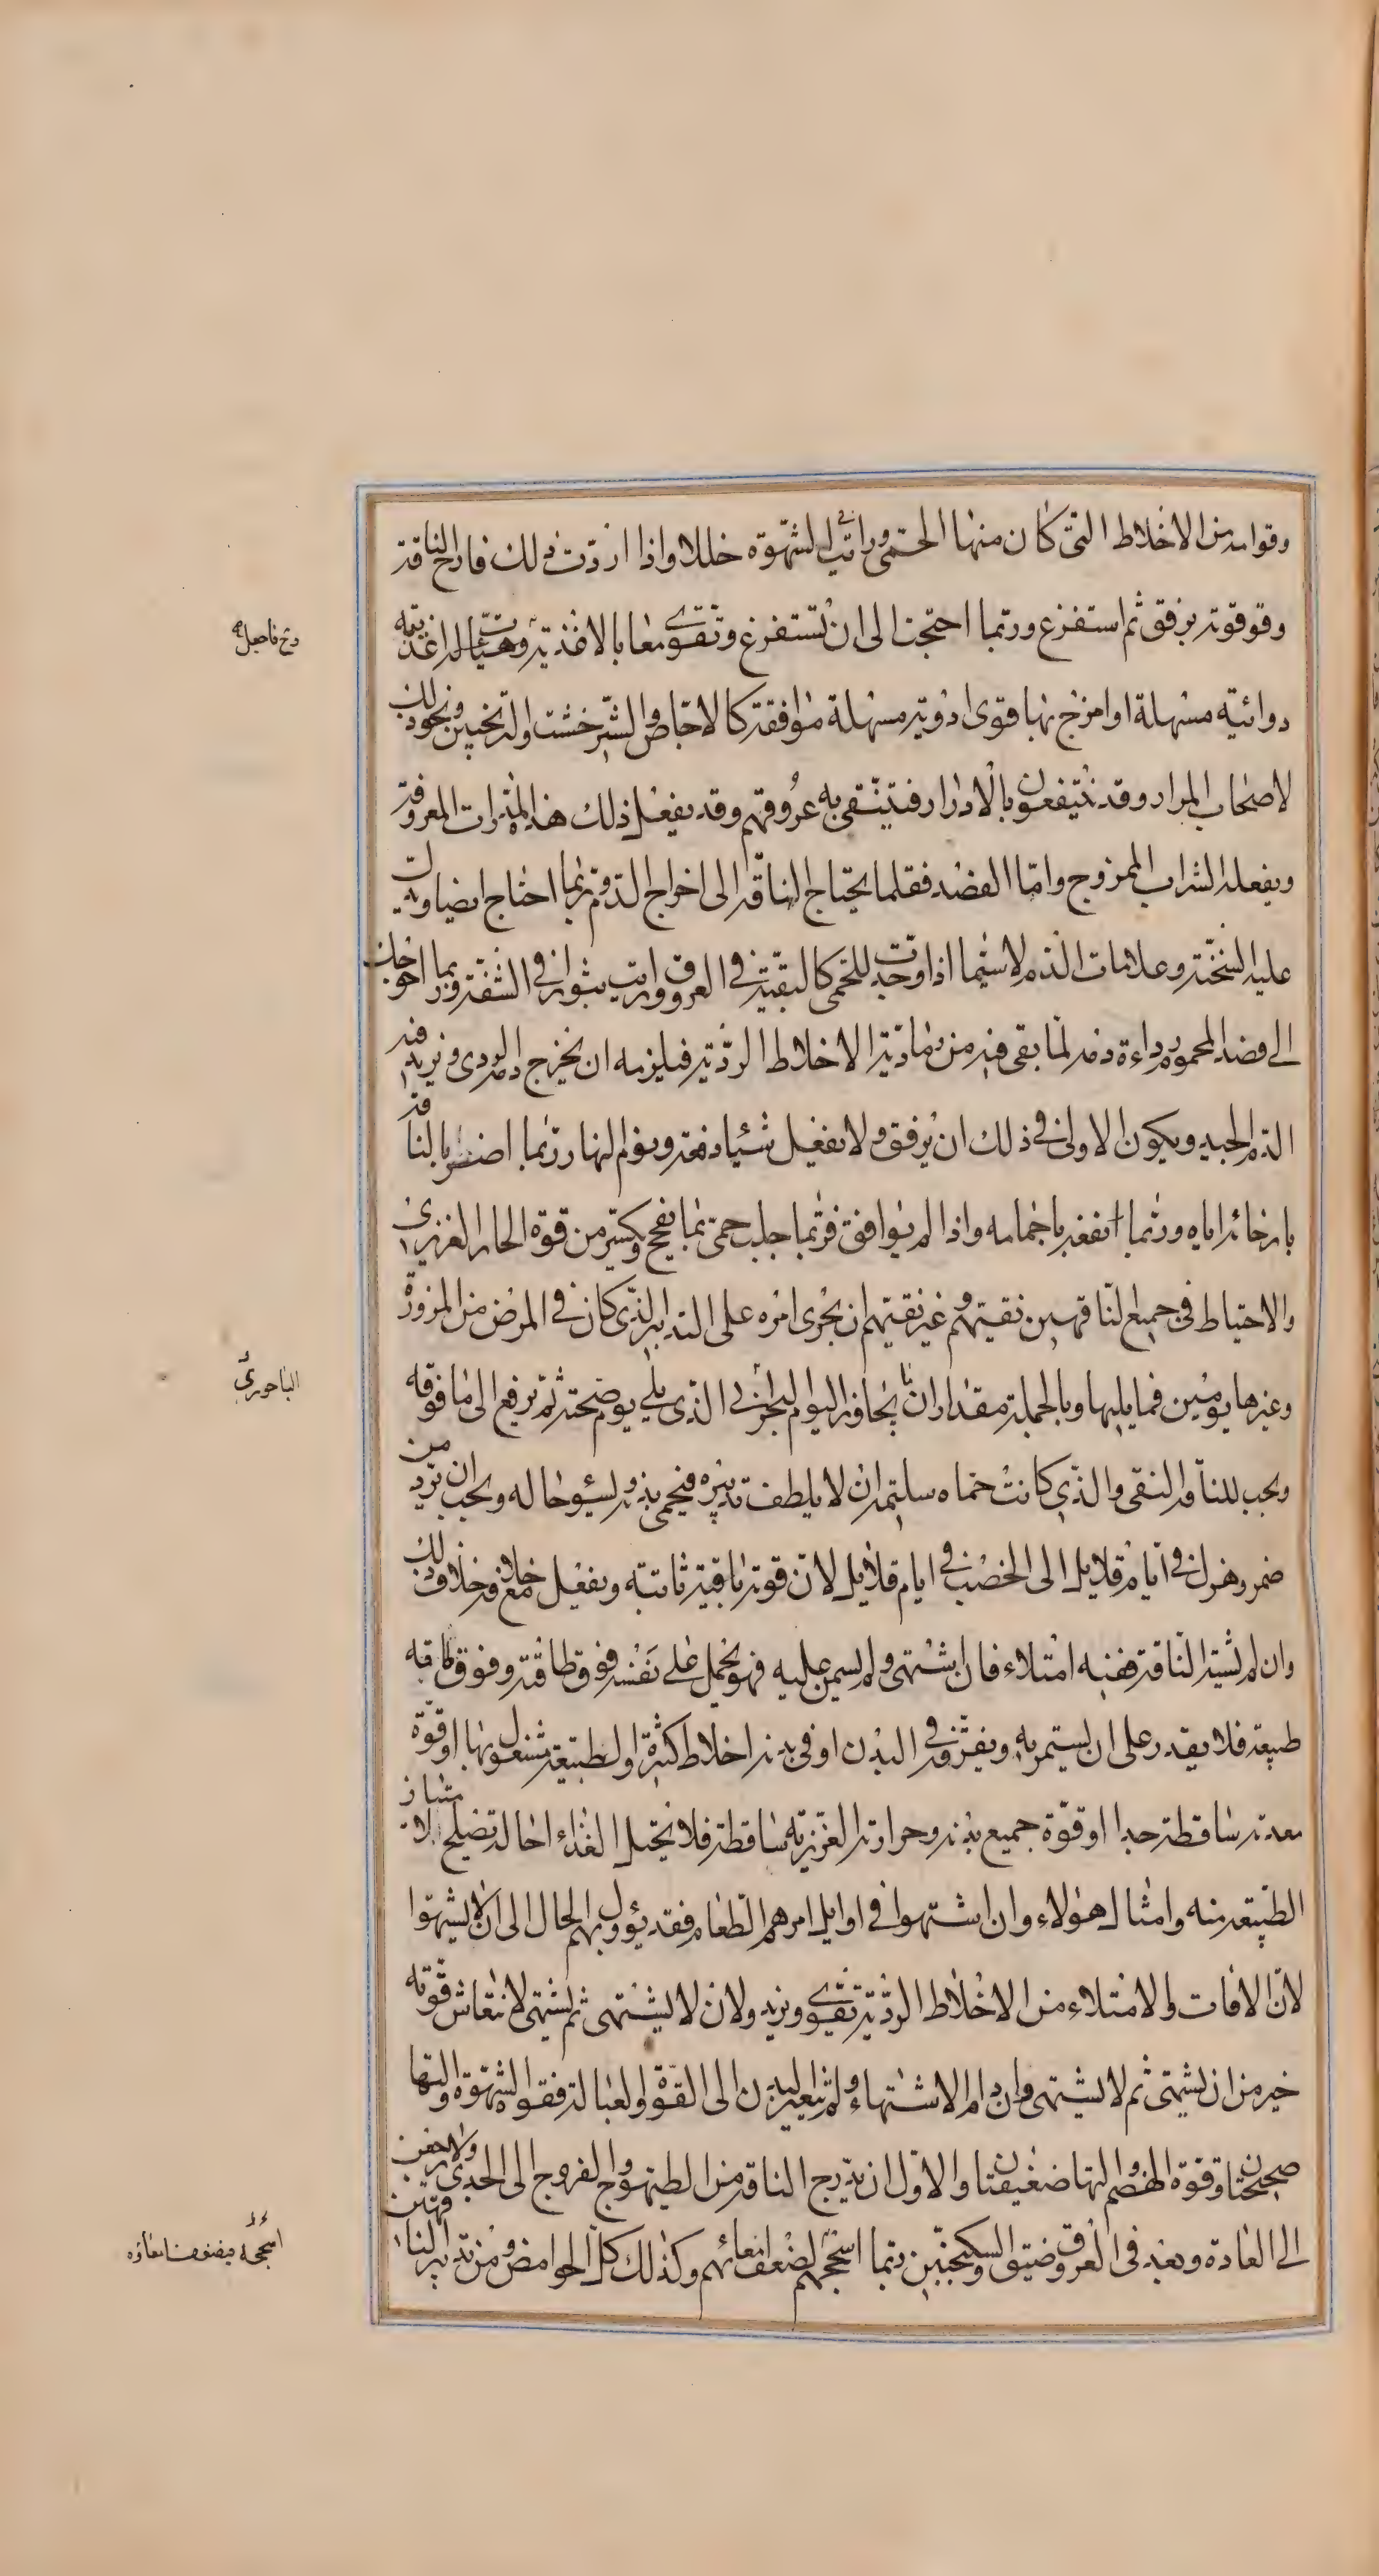 وقوامه من الاخلاط التى كان منها الحمى ورايت فى الشهوة خللا واذا اردت ذلك فارح الناقه
وقو قوته برفق ثم استفرغ وربما احتجت الى ان تستفرغ وتقوى معا بالاغذية وهيأت له اغذية
دوائية مسهلة او امزج بها قوى ادوية مسهلة موافقة كالاجاص والشيرخشت والترنجبين ونحو ذلك
لاصحاب المرار وقد ينتفعون بالادرار فينتقى به عروقهم وقد يفعل ذلك هذه المدرات المعروفة
ويفعله الشراب الممزوج واما الفصد فقلما يحتاج الناقه الى اخراج الدم وربما احتاج ايضا ودلت
عليه السخنة وعلامات الدم لاسيما اذا وجدت للحمى كالبقية فى العروق ورايت بثورا فى الشفة وربما احوجك
الى فصد المحموم رداءة دمه لما بقى فيه من رمادية الاخلاط الردية فيلزمه ان يخرج دمه الردى ويزيد فيه
الدم الجيد ويكون الاولى فى ذلك ان يرفق ولا يفعل شيئا دفعة ونوم النهار ربما اضر بالناقه
بارخائه اياه وربما انفعه باجمامه واذا لم يوافق فربما جلب حمى بما يفجج ويكسر من قوة الحار الغريزى
والاحتياط فى جميع الناقهين نقيهم وغير نقيهم ان يجرى امره على التدبير الذى كان فى المرض من المزورة
وغيرها يومين فما يليها وبالجملة مقدار ان يجاوز اليوم البحرانى الذى يلى يوم صحته ثم يرفع الى ما فوقه
ويجب للناقه النقى والذى كانت حماه سليمة ان لا يلطف تدبيره فيحمى بدنه ويسوء حاله ويجب ان يرد من
ضمر وهزل فى ايام قلايل الى الخصب فى ايام قلايل لان قوته باقية ثابتة ويفعل خلاف ذلك مع خلافه
وان لم يشته الناقه ففيه امتلاء فان اشتهى ولم يسمن عليه فهو يحمل على نفسه فوق طاقته وفوق طاقة
طبيعته فلا يقدر على ان يستمريه ويفرقه فى البدن او فى بدنه اخلاط كثيرة والطبيعة مشغولة بها او قوة
معدته ساقطة جدا او قوة جميع بدنه وحرارته الغريزية ساقطة فلا يحيل الغذاء احالة تصلح لامتياز
الطبيعة منه وامثال هؤلاء وان اشتهوا فى اوايل امرهم الطعام فقد يؤول بهم الحال الى ان لا يشتهوا
لان الافات والامتلاء من الاخلاط الردية تقوى وتزيد ولان لا يشتهى ثم يشتهى لانتعاش قوته
خير من ان يشتهى ثم لا يشتهى وان دام الاشتهاء ولم يتغير البدن الى القوة والعبالة فقوا الشهوة والتها
صحيحتان وقوة الهضم والتها ضعيفتان والاول ان يدرج الناقه من الطيهوج والفروج الى الجدى ولا يرجعن
الى العادة وبعد فى العروق ضيق والسكنجبين ربما اسحجهم لضعف امعائهم وكذلك كل الحوامض ومن تدبير الناقهين
الباحورى